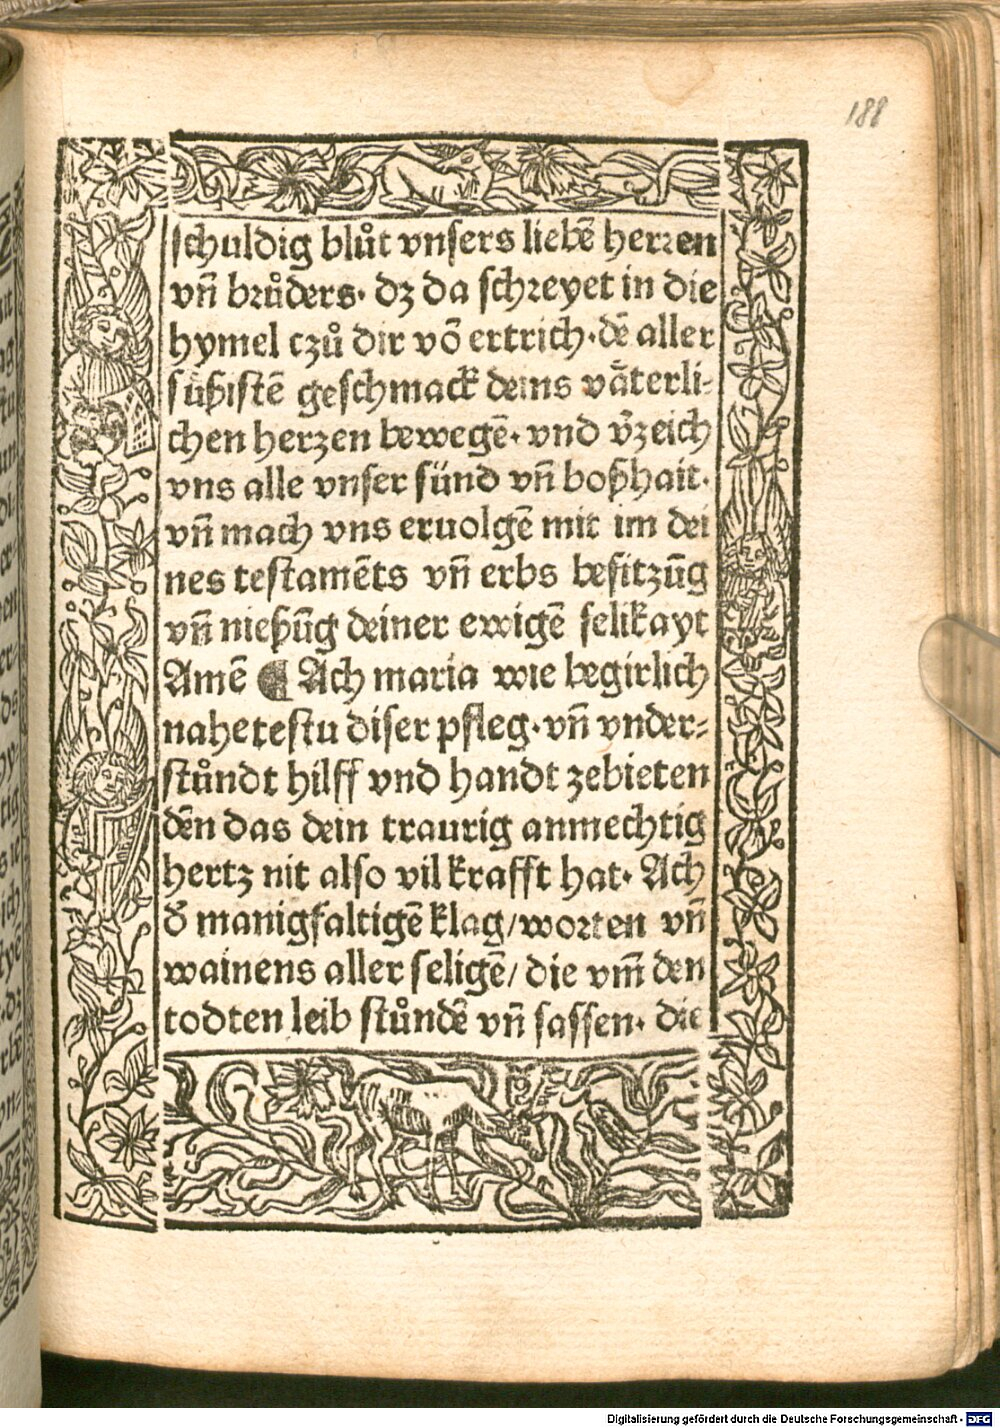 188
schuldig blůt vnsers liebē herren
vn̄ brůders· dz da schreyet in die
hymel czů dir vō ertrich·dē aller
süßistē geschmack deins väterli-
chen herzen bewegē· vnd v̄zeich
vns alle vnser sünd vn̄ boßhait·
vn̄ mach vns eruolgē mit im dei
nes testamēts vn̄ erbs besitzūg
vn̄ nießūg deiner ewigē selikayt
Amē ¶ Ach maria wie begirlich
nahetestu diser pfleg· vn̄ vnder-
stůndt hilff vnd handt zebieten
dēn das dein traurig anmechtig
hertz nit also vil krafft hat· Ach
d̄ manigfaltigē klag/worten vn̄
wainens aller seligē/ die vm̄ den
todten leib stůndē vn̄ sassen· die
Digitalisierung gefördert durch die Deutsche Forschungsgemeinschaft - DFG